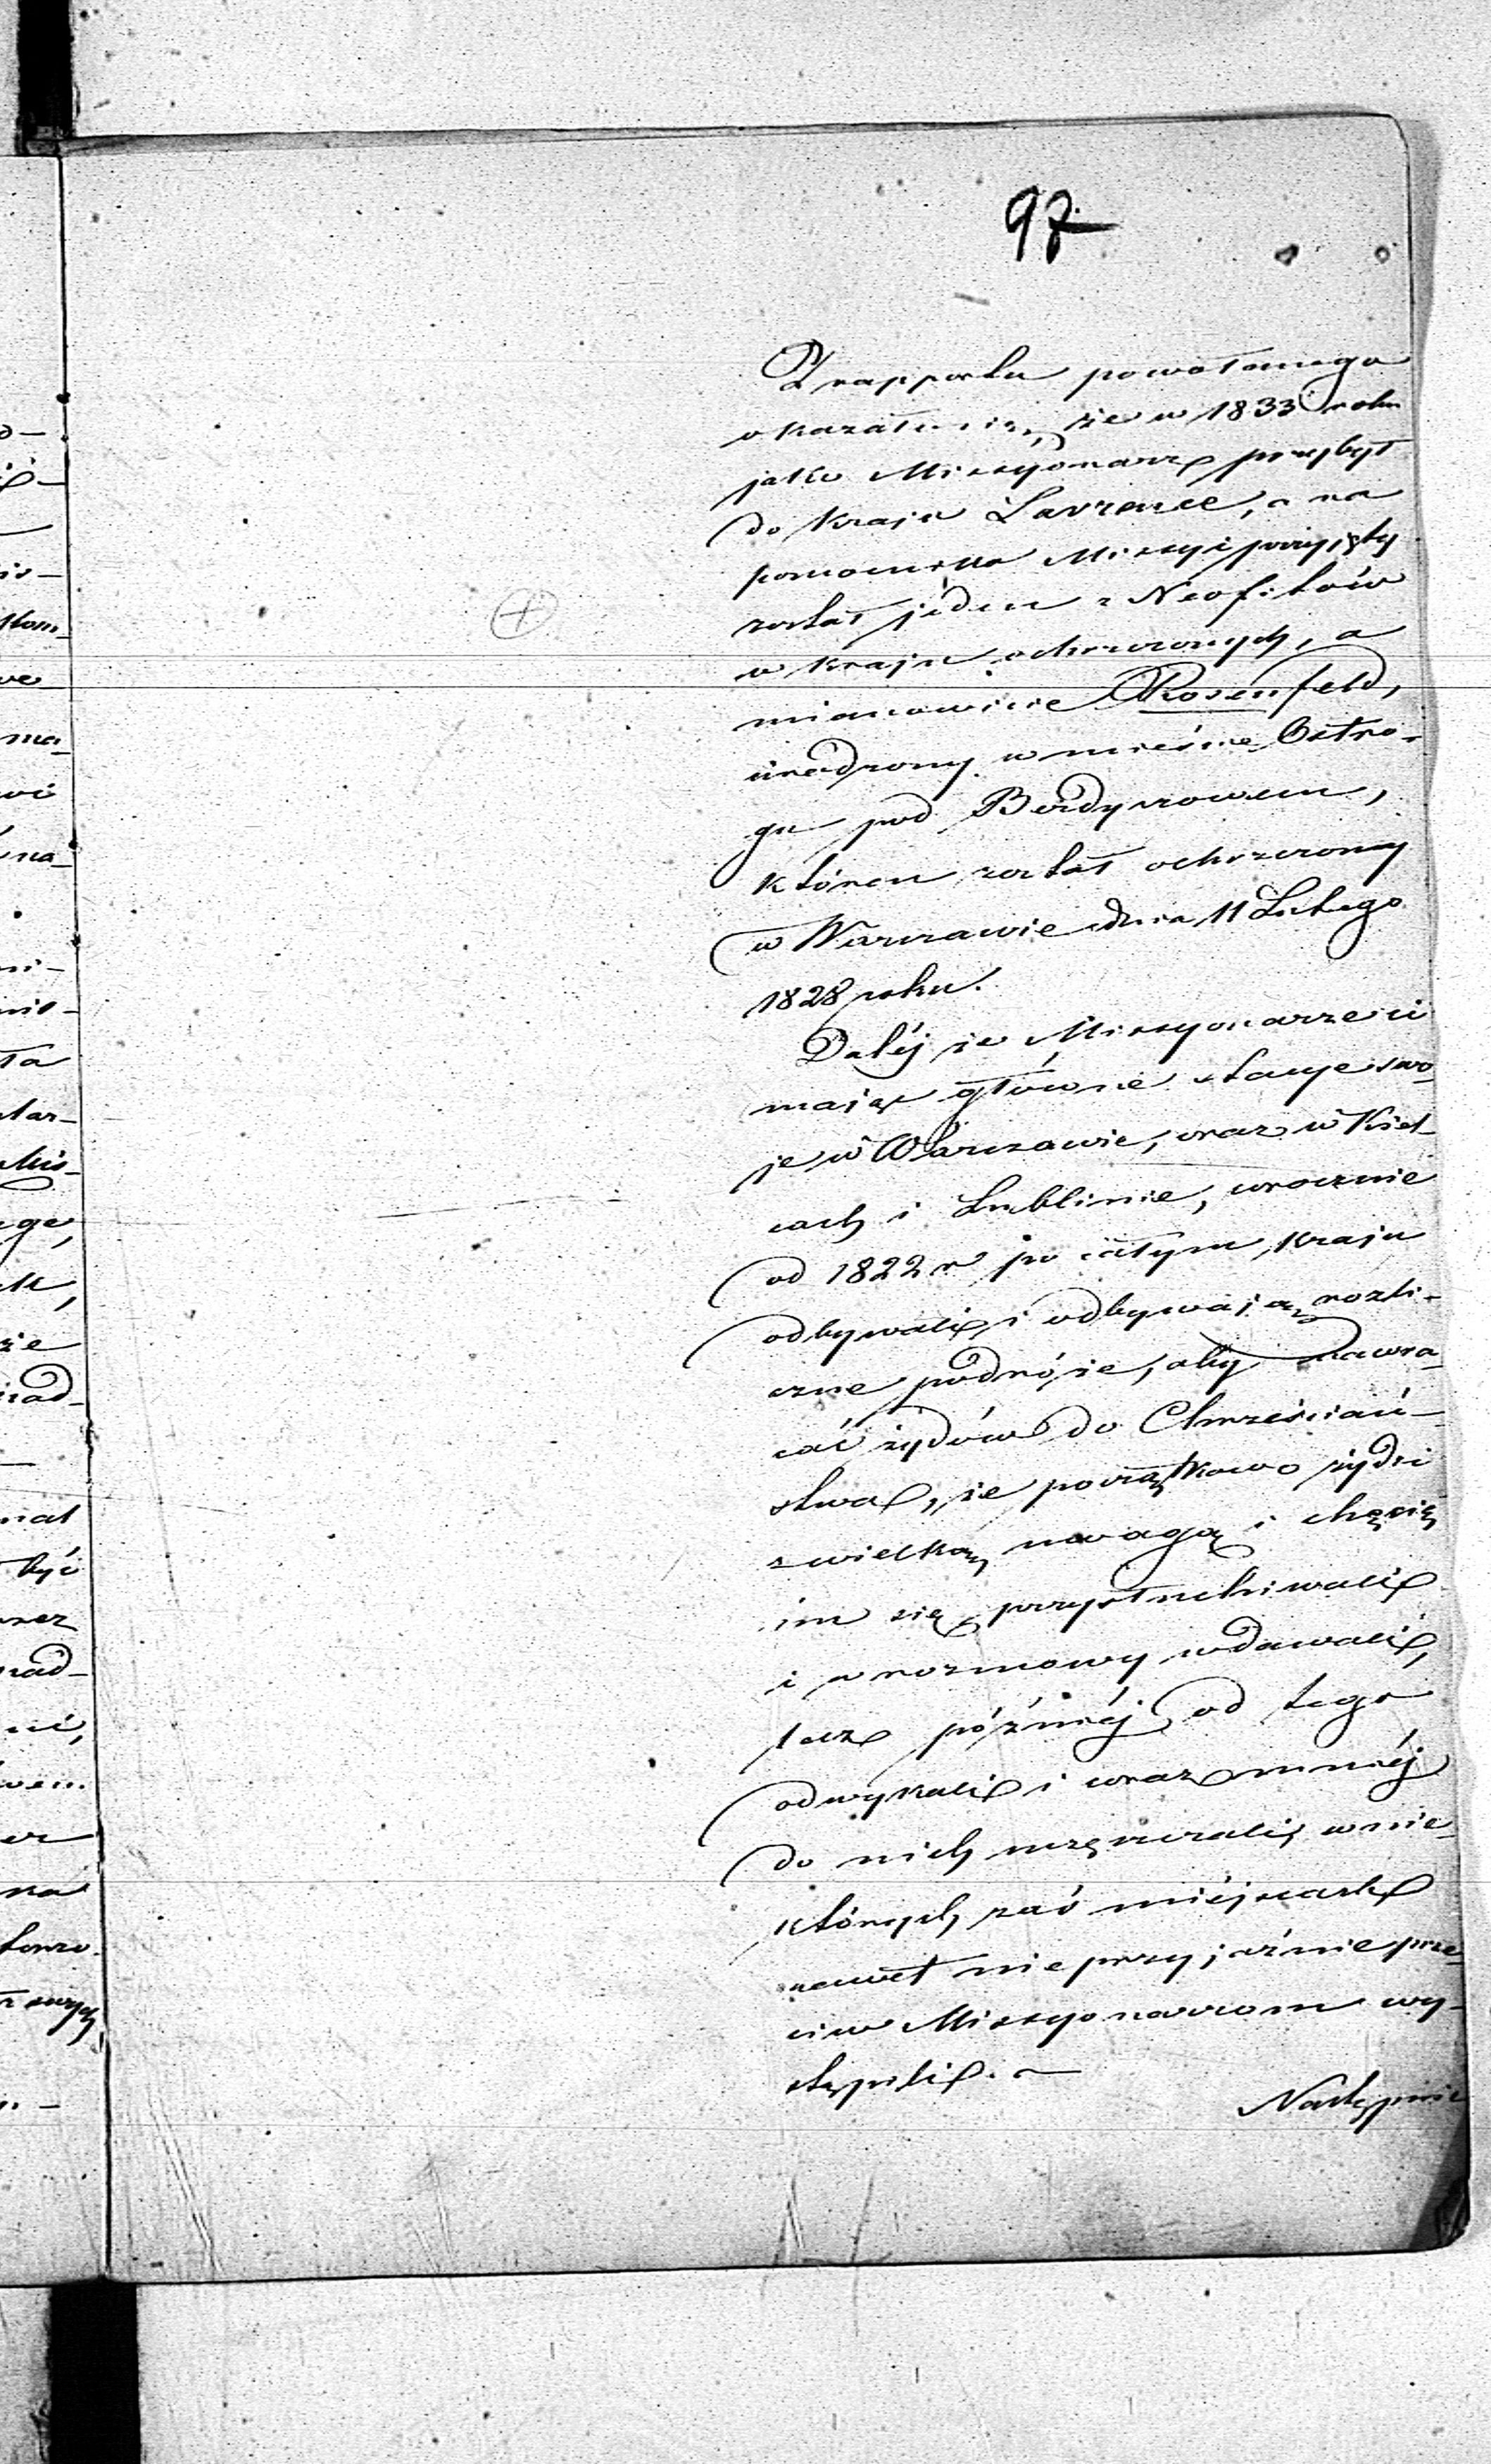 97
Z rapportu powołanego
okazało się, że w 1833 roku
jako Missyonarz przybył
do kraju Lawrence, a na
pomocnika Missyi przyjęty
został jeden z Neofitów
w kraju ochrzczonych, a
mianowicie Rosenfeld,
urodzony w mieście Ostro-
gu pod Berdyczowem,
któren został ochrzczony
w Warszawie dnia 11 Lutego
1828 roku.
Daléj że Missyonarze ci
mając główne stacye swo-
je w Warszawie, oraz w Kiel-
cach i Lublinie, corocznie
od 1822 r po całym kraju
odbywali i odbywają rozli-
czne podróże, aby nawra-
cać żydów do Chrześciań-
stwa, że początkowo żydzi
z wielką uwagą i chęcią
im się przysłuchiwali
i w rozmowy wdawali,
lecz późniéj od tego
odwykali i coraz mniéj
do nich uczęszczali, w nie-
których zaś miéjscach
nawet nieprzyjaźnie prze-
ciw Missyonarzom wy-
stąpili. —
Następnie